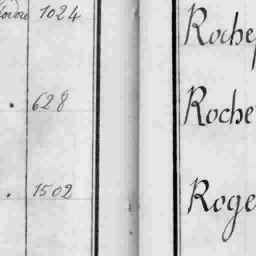 1024
628
1502
Roche
Roche
Roge